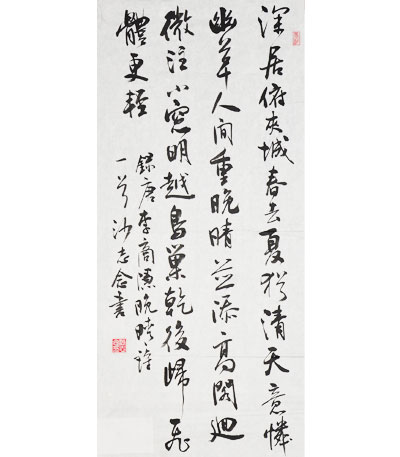 深居俯夾城春去夏猶清天意憐
幽草人間重晚晴並添高閣迥
微注小窗明越鳥巢乾後歸飛
體更輕
錄唐李商隱晚晴詩
沙志念書